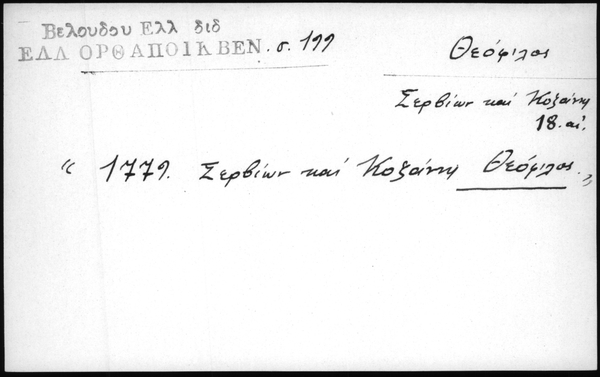 Βελουδου Ελλ διδ
ΕΛΛ ΟΡΘ ΑΠΟΙΚ ΒΕΝ. σ. 199
Θεόφιλος
Σερβίων καί Κοζάνης
18. αἰ.
“ 1779. Σερβίων καί Κοζάνης Θεόφιλος. „